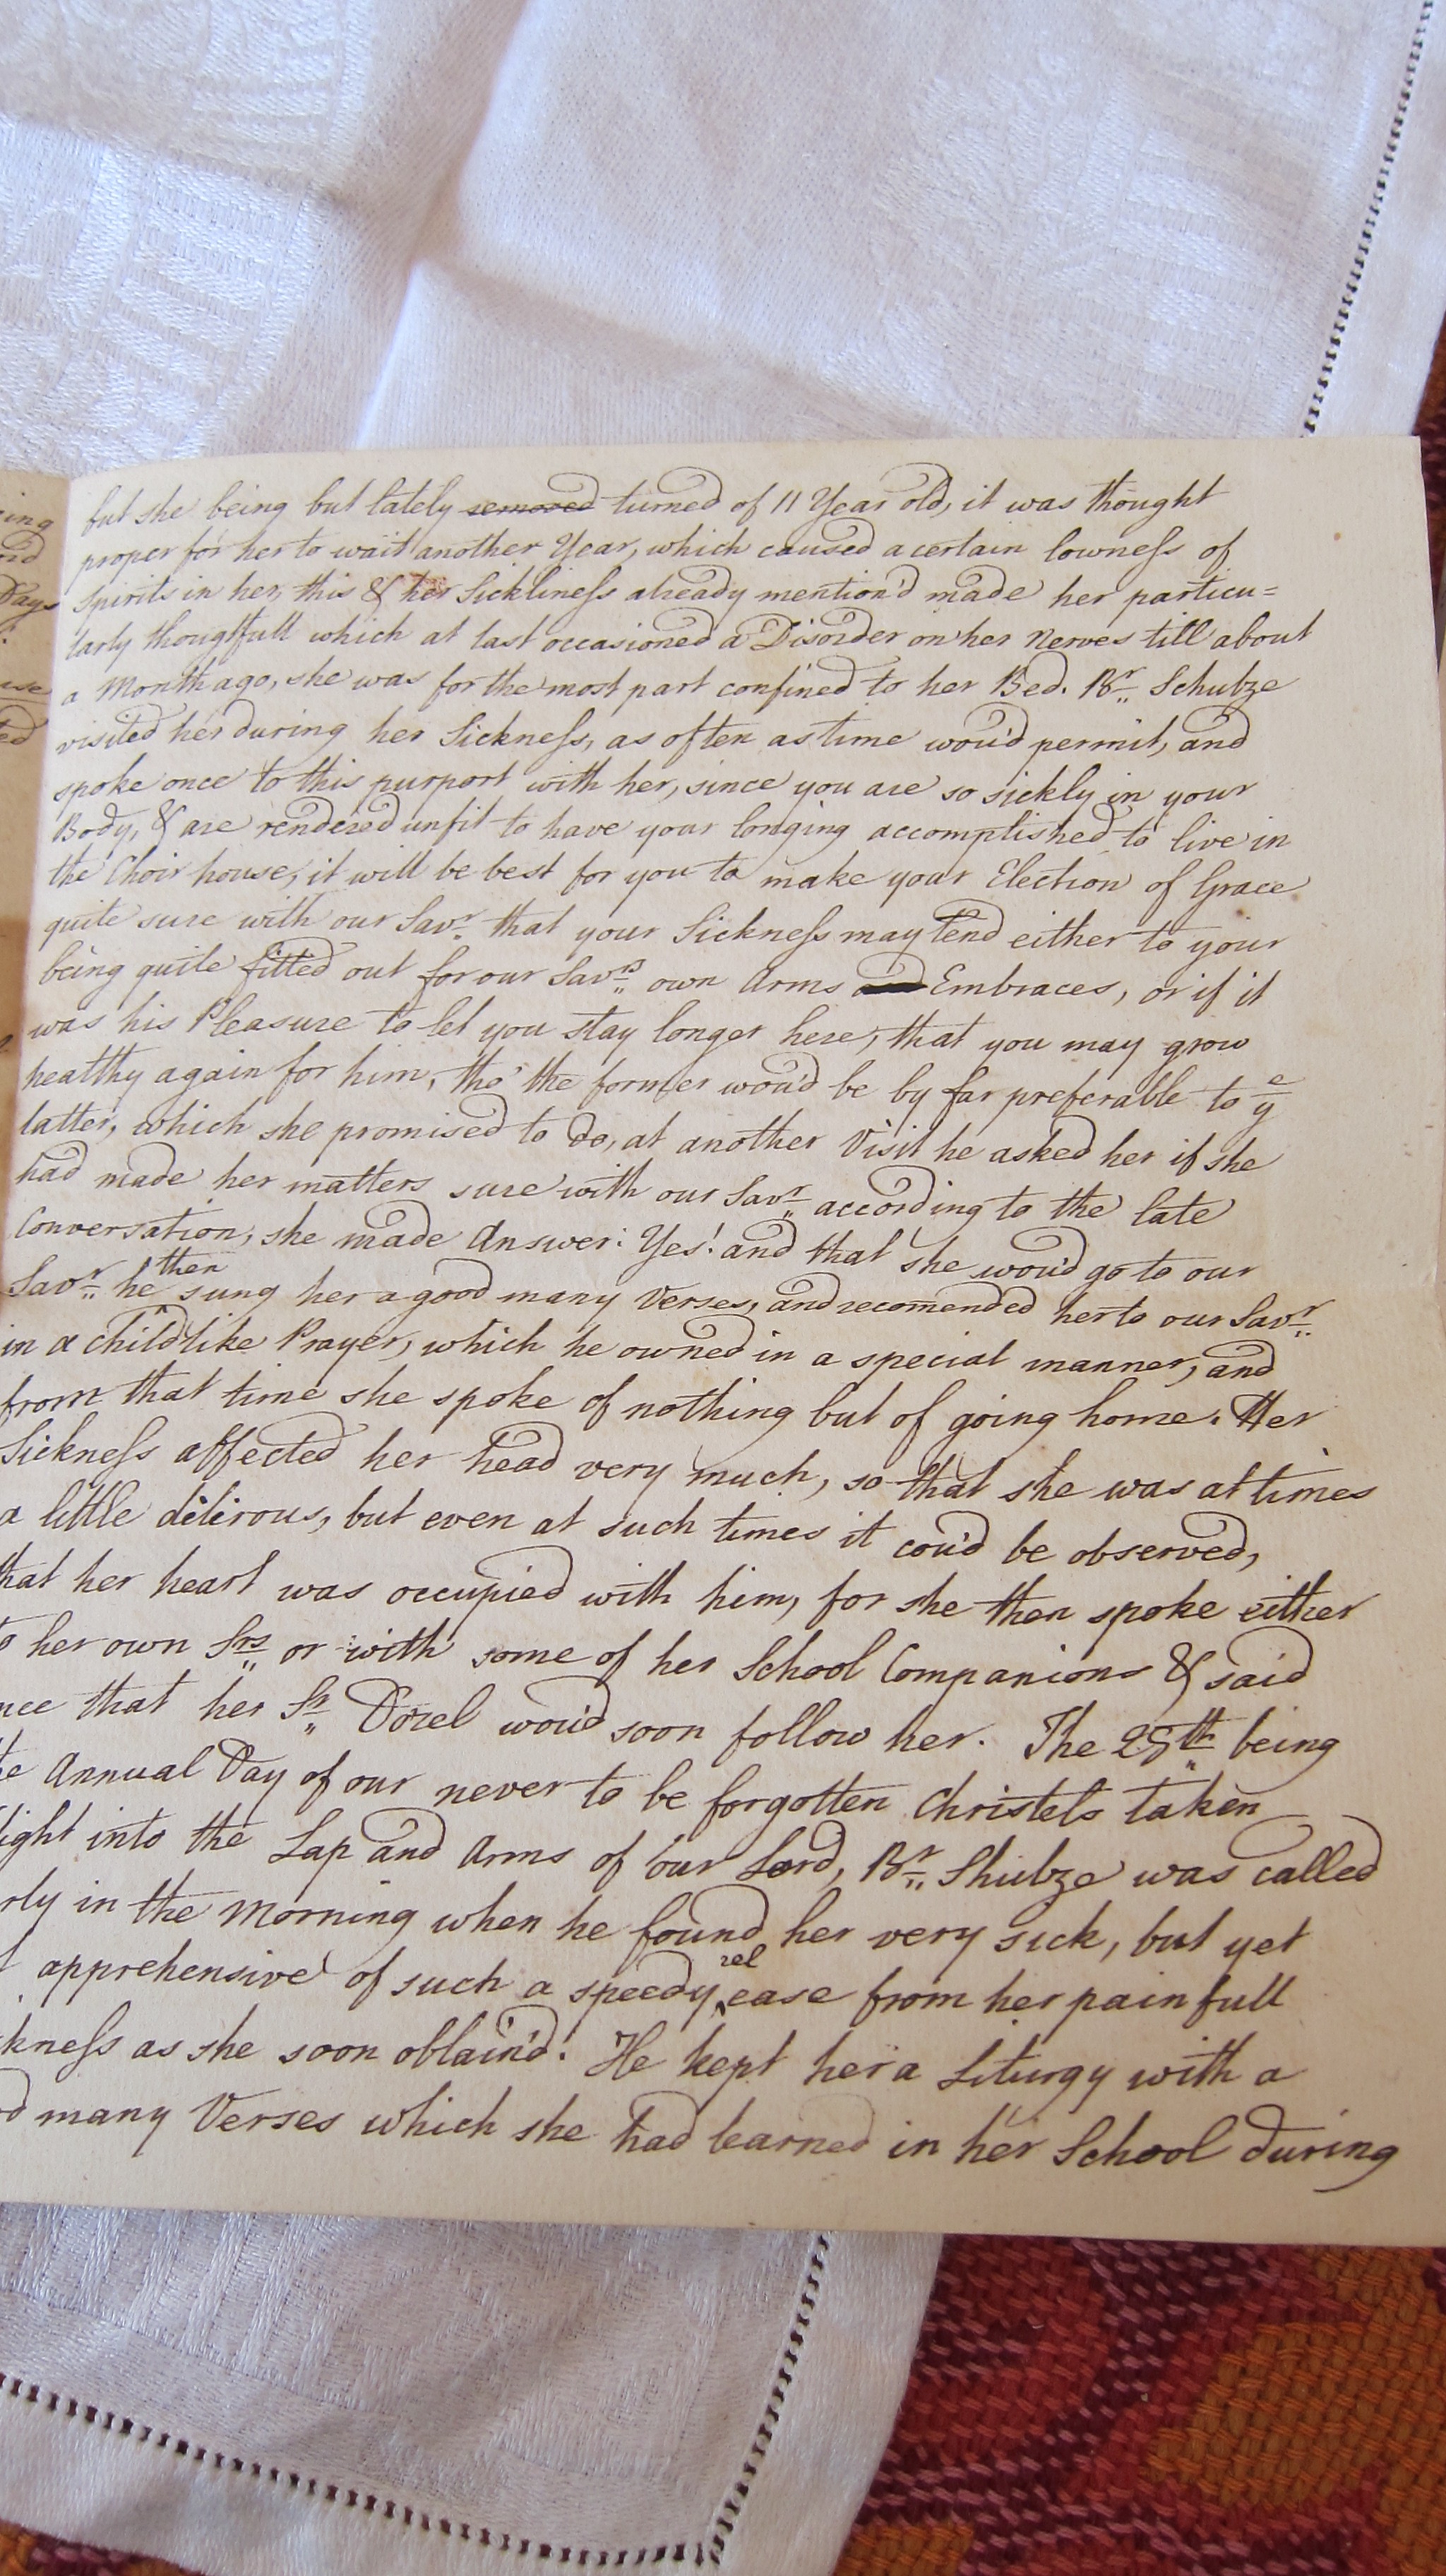 ful she being but lately removed turned of 11 Year old, it was thought
proper for her to wait another Year, which caused a certain lowness of
Spirits in her, this & her Sickliness already mention'd made her particu=
larly thoughtfull which at last occasioned a Disorder on her Nerves till about
a Month ago, she was for the most part confined to her Bed. Br. Schulze
visited her during her Sickness, as often as time wou'd permit, and
spoke once to this purport with her, since you are so sickly in your
Body, & are rendered unfit to have your longing accomplished to live in
the Choir house, it will be best for you to make your Election of Grace
quite sure with our Savr. that your Sickness may tend either to your
being quite fitted out for our Savrs. own Arms Embraces, or if it
was his Pleasure to let you stay longer here, that you may grow
healthy again for him, tho' the former wou'd be by far preferable to ye
latter, which she promised to do, at another Visit he asked her if she
had made her matters sure with our Savr. according to the late
Conversation, she made Answer: Yes! and that she wou'd go to our
Savr. he then sung her a good many Verses, and recomended her to our Savr.
in a Childlike Prayer, which he owned in a special manner, and
from that time she spoke of nothing but of going home. Her
Sickness affected her head very much, so that she was at times
a little delirous, but even at such times it cou'd be observed,
that her heart was occupied with him, for she then spoke either
to her own Srs. or with some of her School Companions & said
nce that her Sr. Dorel wou'd soon follow her. The 25th. being
e Annual Day of our never to be forgotten Christels taken
light into the Lap and Arms of our Lord, Br. Shulze was called
rly in the Morning when he found her very sick, but yet
apprehensive of such a speedy release from her painfull
kness as she soon obtain'd! He kept her a Liturgy with a
d many Verses which she had learned in her School during